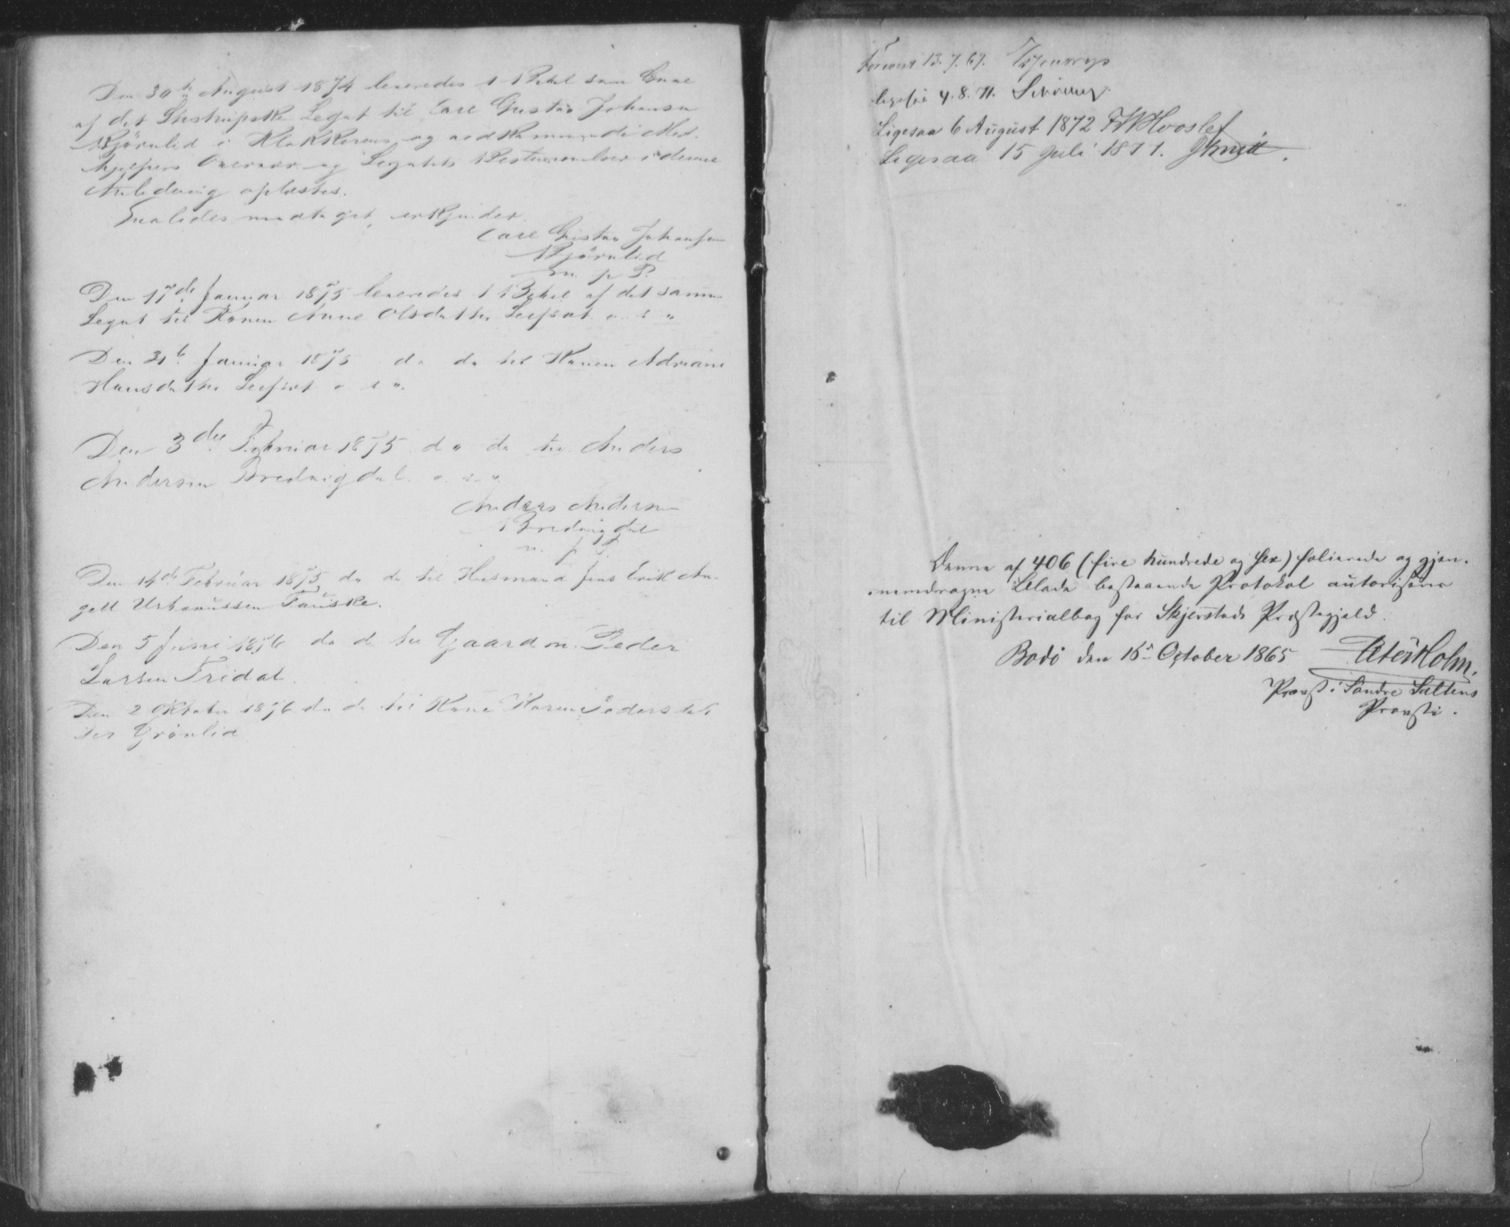 Den 30te August 1874 leveredes 1 Bibel som Gave
af det Thestrupske Legat til Carl Gustav Johansen
Bjørnlid i Klokkerens og medkommende Med-
hjelpers Overvær og Legatets Bestemmelser i denne
Anledning oplæstes.
Saaledes modtaget, erkjender
Carl Gustav Johansen
Bjørnlid
m. p. P.
Den 17de Januar 1875 leveredes 1 Bibel af det samme
Legat til Konen Anne Olsdatter Leifset o. s. v.
Den 31te Januar 1875 do do til Konen Adriane
Hansdatter Leifset o. s. v.
Den 3die Februar 1875 do do til Anders
Andersen Bredvigdal o. s. v.
Anders Andersen
Bredvigdal
m. p. P.
Den 14de Februar 1875 do do til Husmand Jens Erik An-
gell Urbanussen Fauske.
Den 5 Juni 1876 do do til Gaardm. Peder
Larsen Fridal.
Den 2 Oktober 1876 do do til Kone Karen Pedersdat-
ter Grønlid
Foreviist 13.7.67.
4.8.71.
Ligesaa 6 August 1872
Ligesaa 15 Juli 1877.
Denne af 406 (fire hundrede og sex) folierede og gjen-
nemdragne Blade bestaaende Protokol autoriseres
til Ministerialbog for Skjerstads Præstegjeld.
Bodö den 16de October 1865 Peter Holm,
Provst i Søndre Saltens
Provsti.